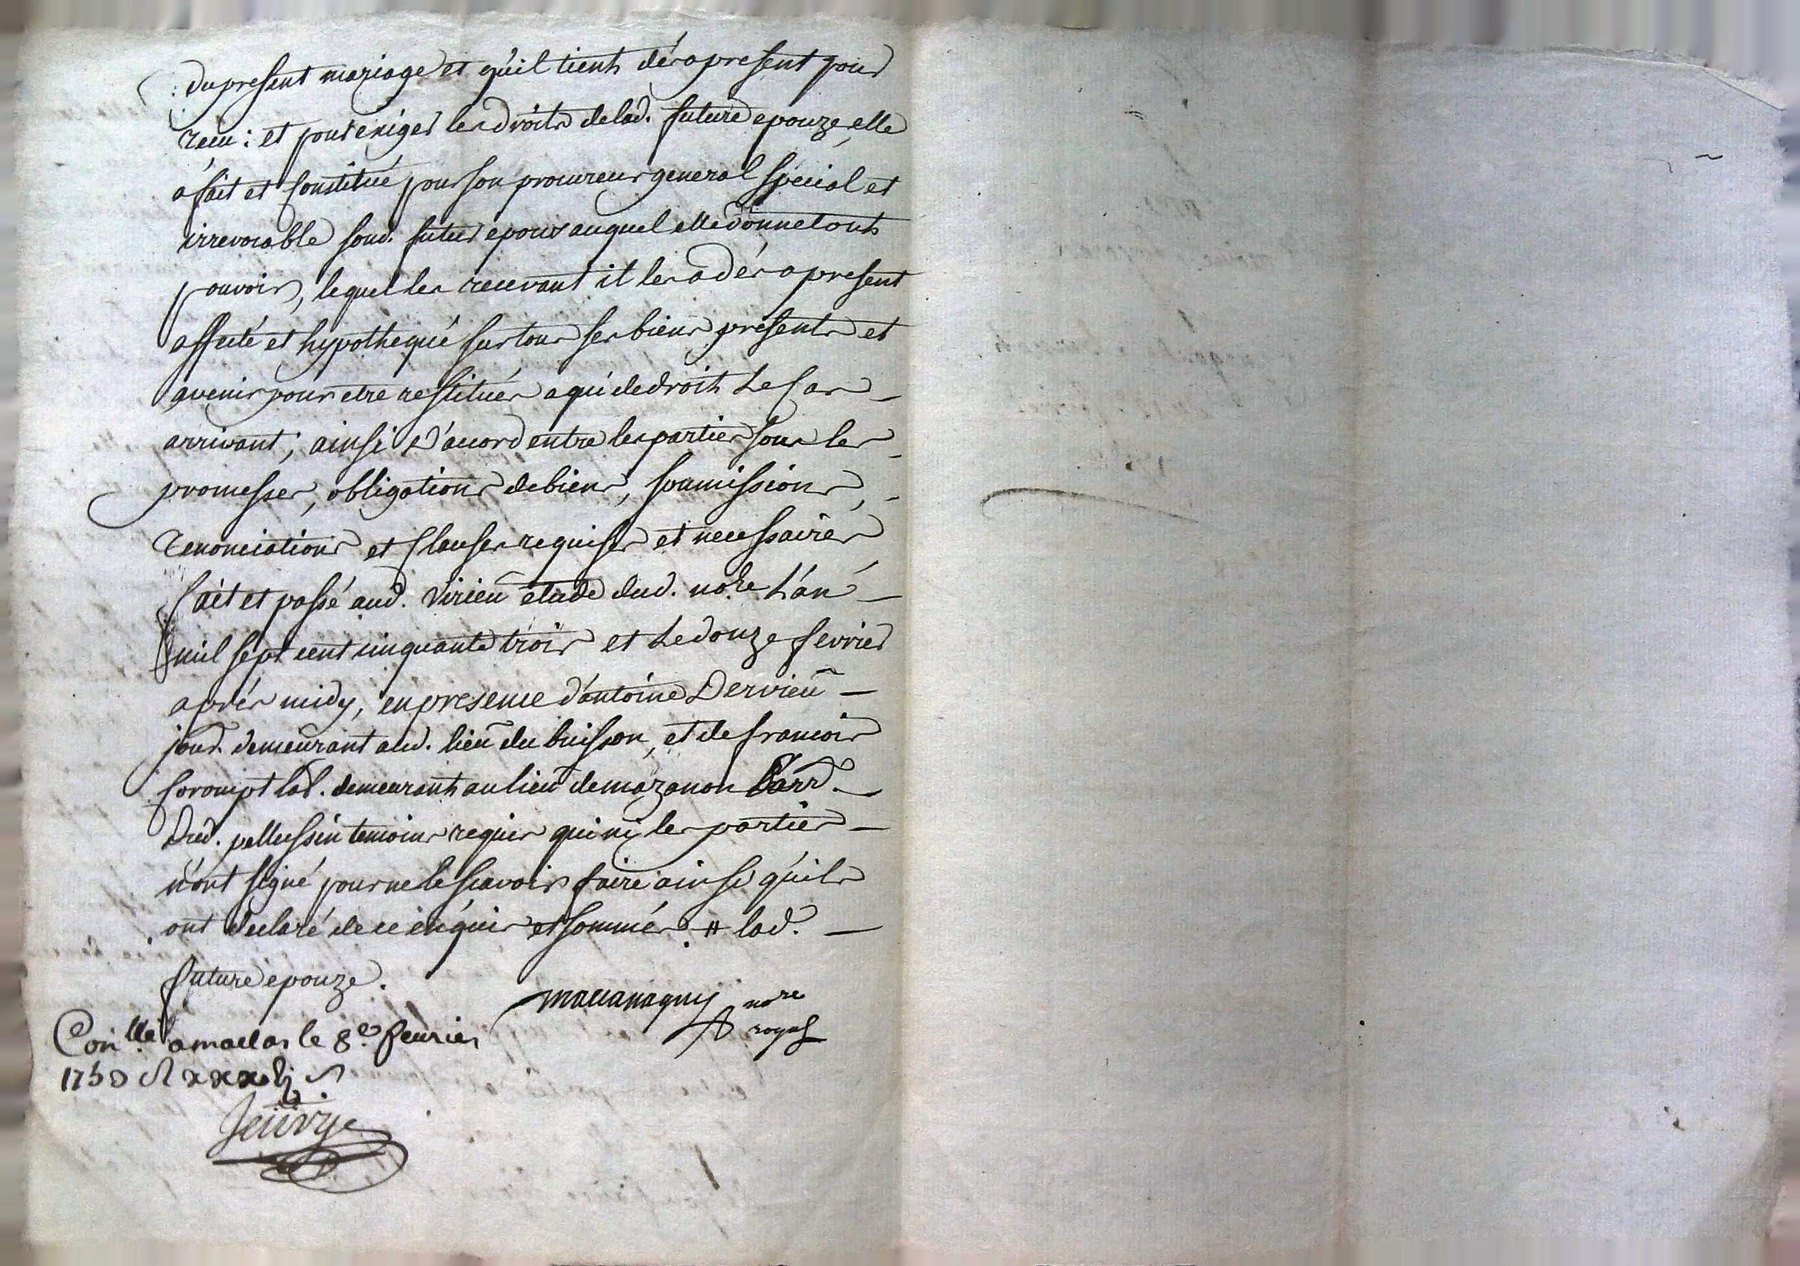 du present mariage et qu'il tient dés apresent pour
recu: et pour exiger les droits de lad. future epouze, elle
a fait et constitué pour son procureur general special et
irrevocable sond. futur epoux auquel elle donne tout
pouvoir, lequel les recevant il les a dés apresent
affecté et hypothequé sur tous ses biens presents et
avenir pour etre restitués a qui de droit le cas
arrivant; ainsi d'accord entre les parties sous les
promesses, obligations de biens, soumissions,
renonciations et clauses requises et necessaires
fait et passé aud. virieu etude dud. no.re L'an
mil sept cent cinquante trois et le douze fevrier
aprés midy, en presence d'antoine Dervieu
jour. demeurant aud. lieu du buisson, et de francois
corompt lab. demeurant au lieu de mazanon
Dud. pellussin temoins requis qui ni les parties
n'ont signé pour ne le scavoir faire ainsi qu'ils
ont declaré de ce enquis et sommés. # lad.
future epouze.
nore
royal
Con.llé a le fevrier